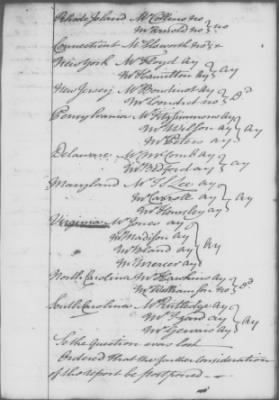 Rhode Island Mr Collins no } no
Mr Arnold no
Connecticut Mr Elsworth no x
New York Mr Floyd ay } ay
Mr Hamilton ay
New Jersey Mr Boudinot ay } Dd
Mr Condict no
Pennsylvania Mr Fitzsimmons ay } ay
Mr Wilson ay
Mr Peters ay
Delaware Mr McComb ay } ay
Mr Bedford ay
Maryland Mr T S Lee ay } ay
Mr Carroll ay
Mr Hemsley ay
Virginia Mr Jones ay } ay
Mr Madison ay
Mr Bland ay
Mr Mercer ay
North Carolina Mr Hawkins ay } Dd
Mr Williamson no
South Carolina Mr Rutledge ay } ay
Mr Izard ay
Mr Gervais ay
So the question was lost
Ordered that the further consideration
of this report be postponed